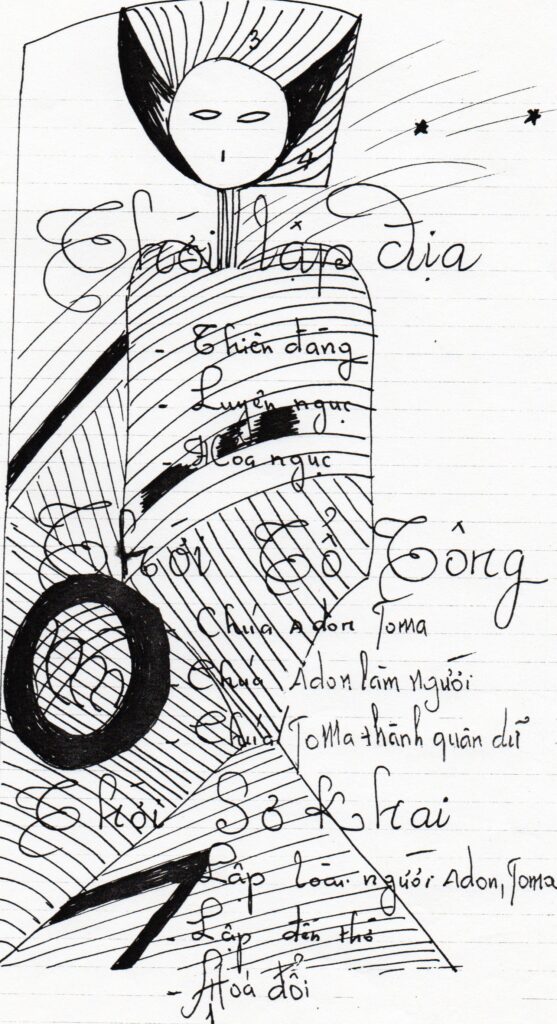 3
1
4
Thời lập địa
- Thiên đàng
- Luyện ngục
- Hỏa ngục
Thời Tổ Tông
- Chúa Adon Toma
- Chúa Adon làm người
- Chúa Toma thành quân dữ
Thời Sơ Khai
- Lập loài người Adon, Toma
- Lập đền thờ
- Hoá đổi
1